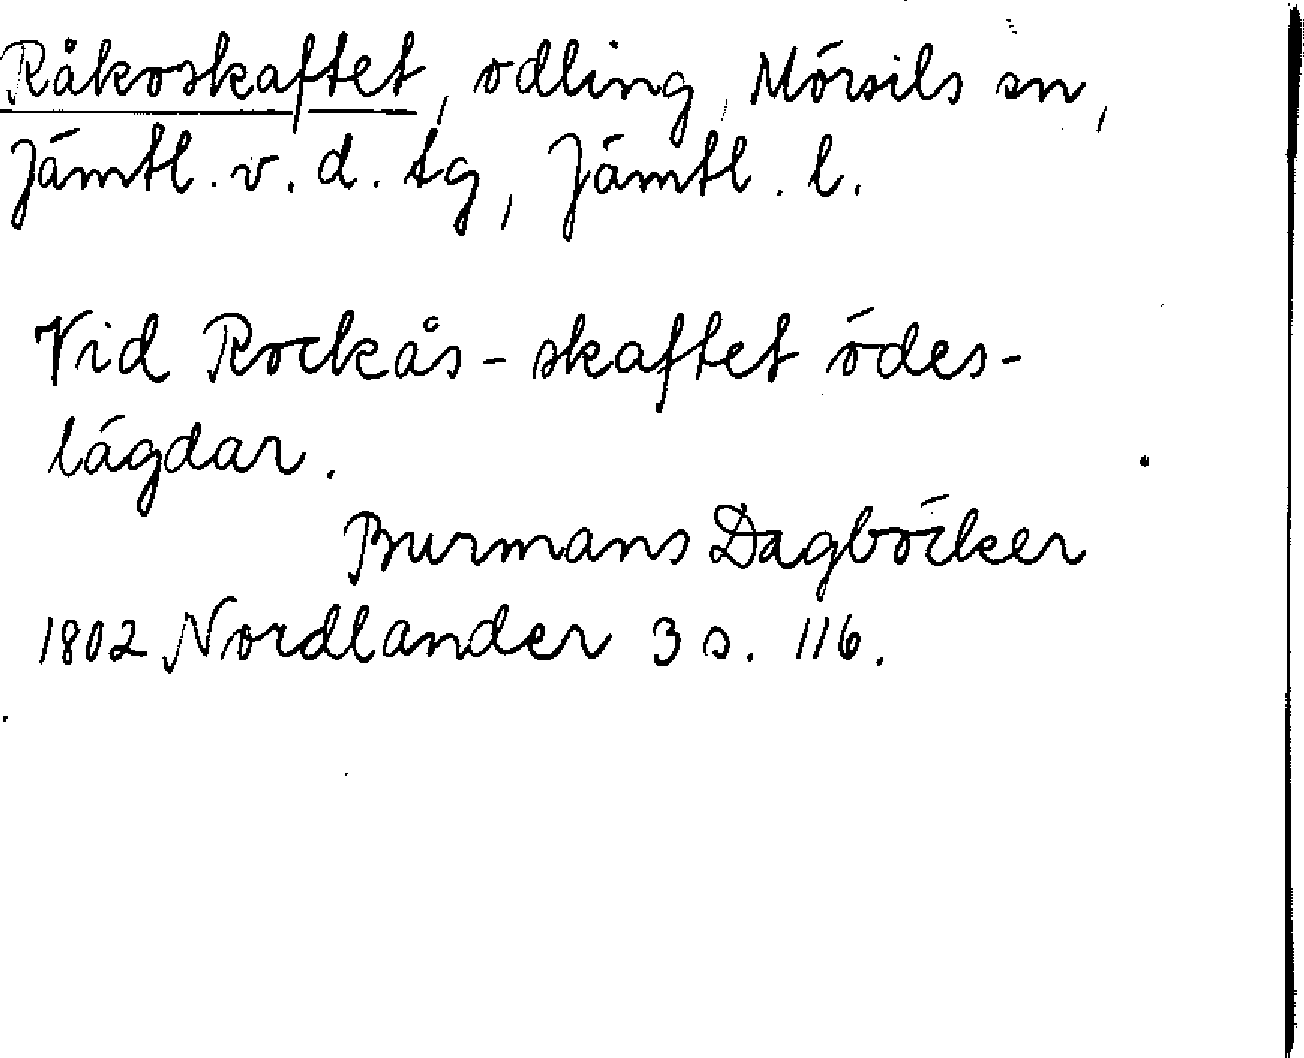 Råkoskaftet, odling, Mörsils sn,
Jämtl. v. d. tg, Jämtl. l.
Vid Rockås-skaftet ödes-
lägdar.
Burmans Dagböcker
1802 Nordlander 3 s. 116.